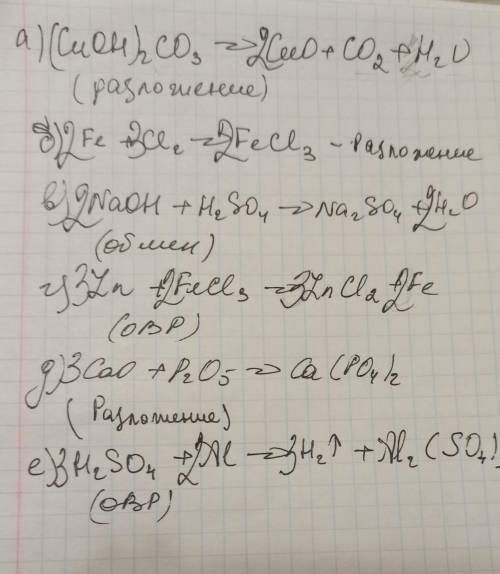 а) (CuOH)₂CO₃ → 2CuO + CO₂ + H₂O
(разложение)
б) 2Fe + 3Cl₂ → 2FeCl₃ - Разложение
в) 2NaOH + H₂SO₄ → Na₂SO₄ + 2H₂O
(обмен)
г) 3Zn + 2FeCl₃ → 3ZnCl₂ + 2Fe
(ОВР)
д) 3CaO + P₂O₅ → Ca(PO₄)₂
(Разложение)
е) 3H₂SO₄ + 2Al → 3H₂↑ + Al₂(SO₄)
(ОВР)